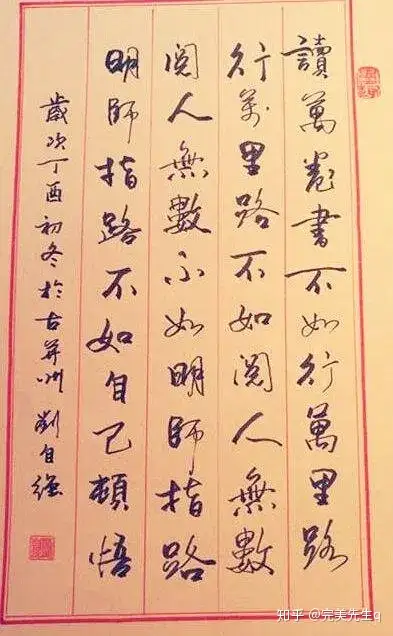 讀萬卷書不如行萬里路
行萬里路不如閱人無數
閱人無數不如明師指路
明師指路不如自己頓悟
歲次丁酉初冬於古并州劉自強
知乎 @完美先生q